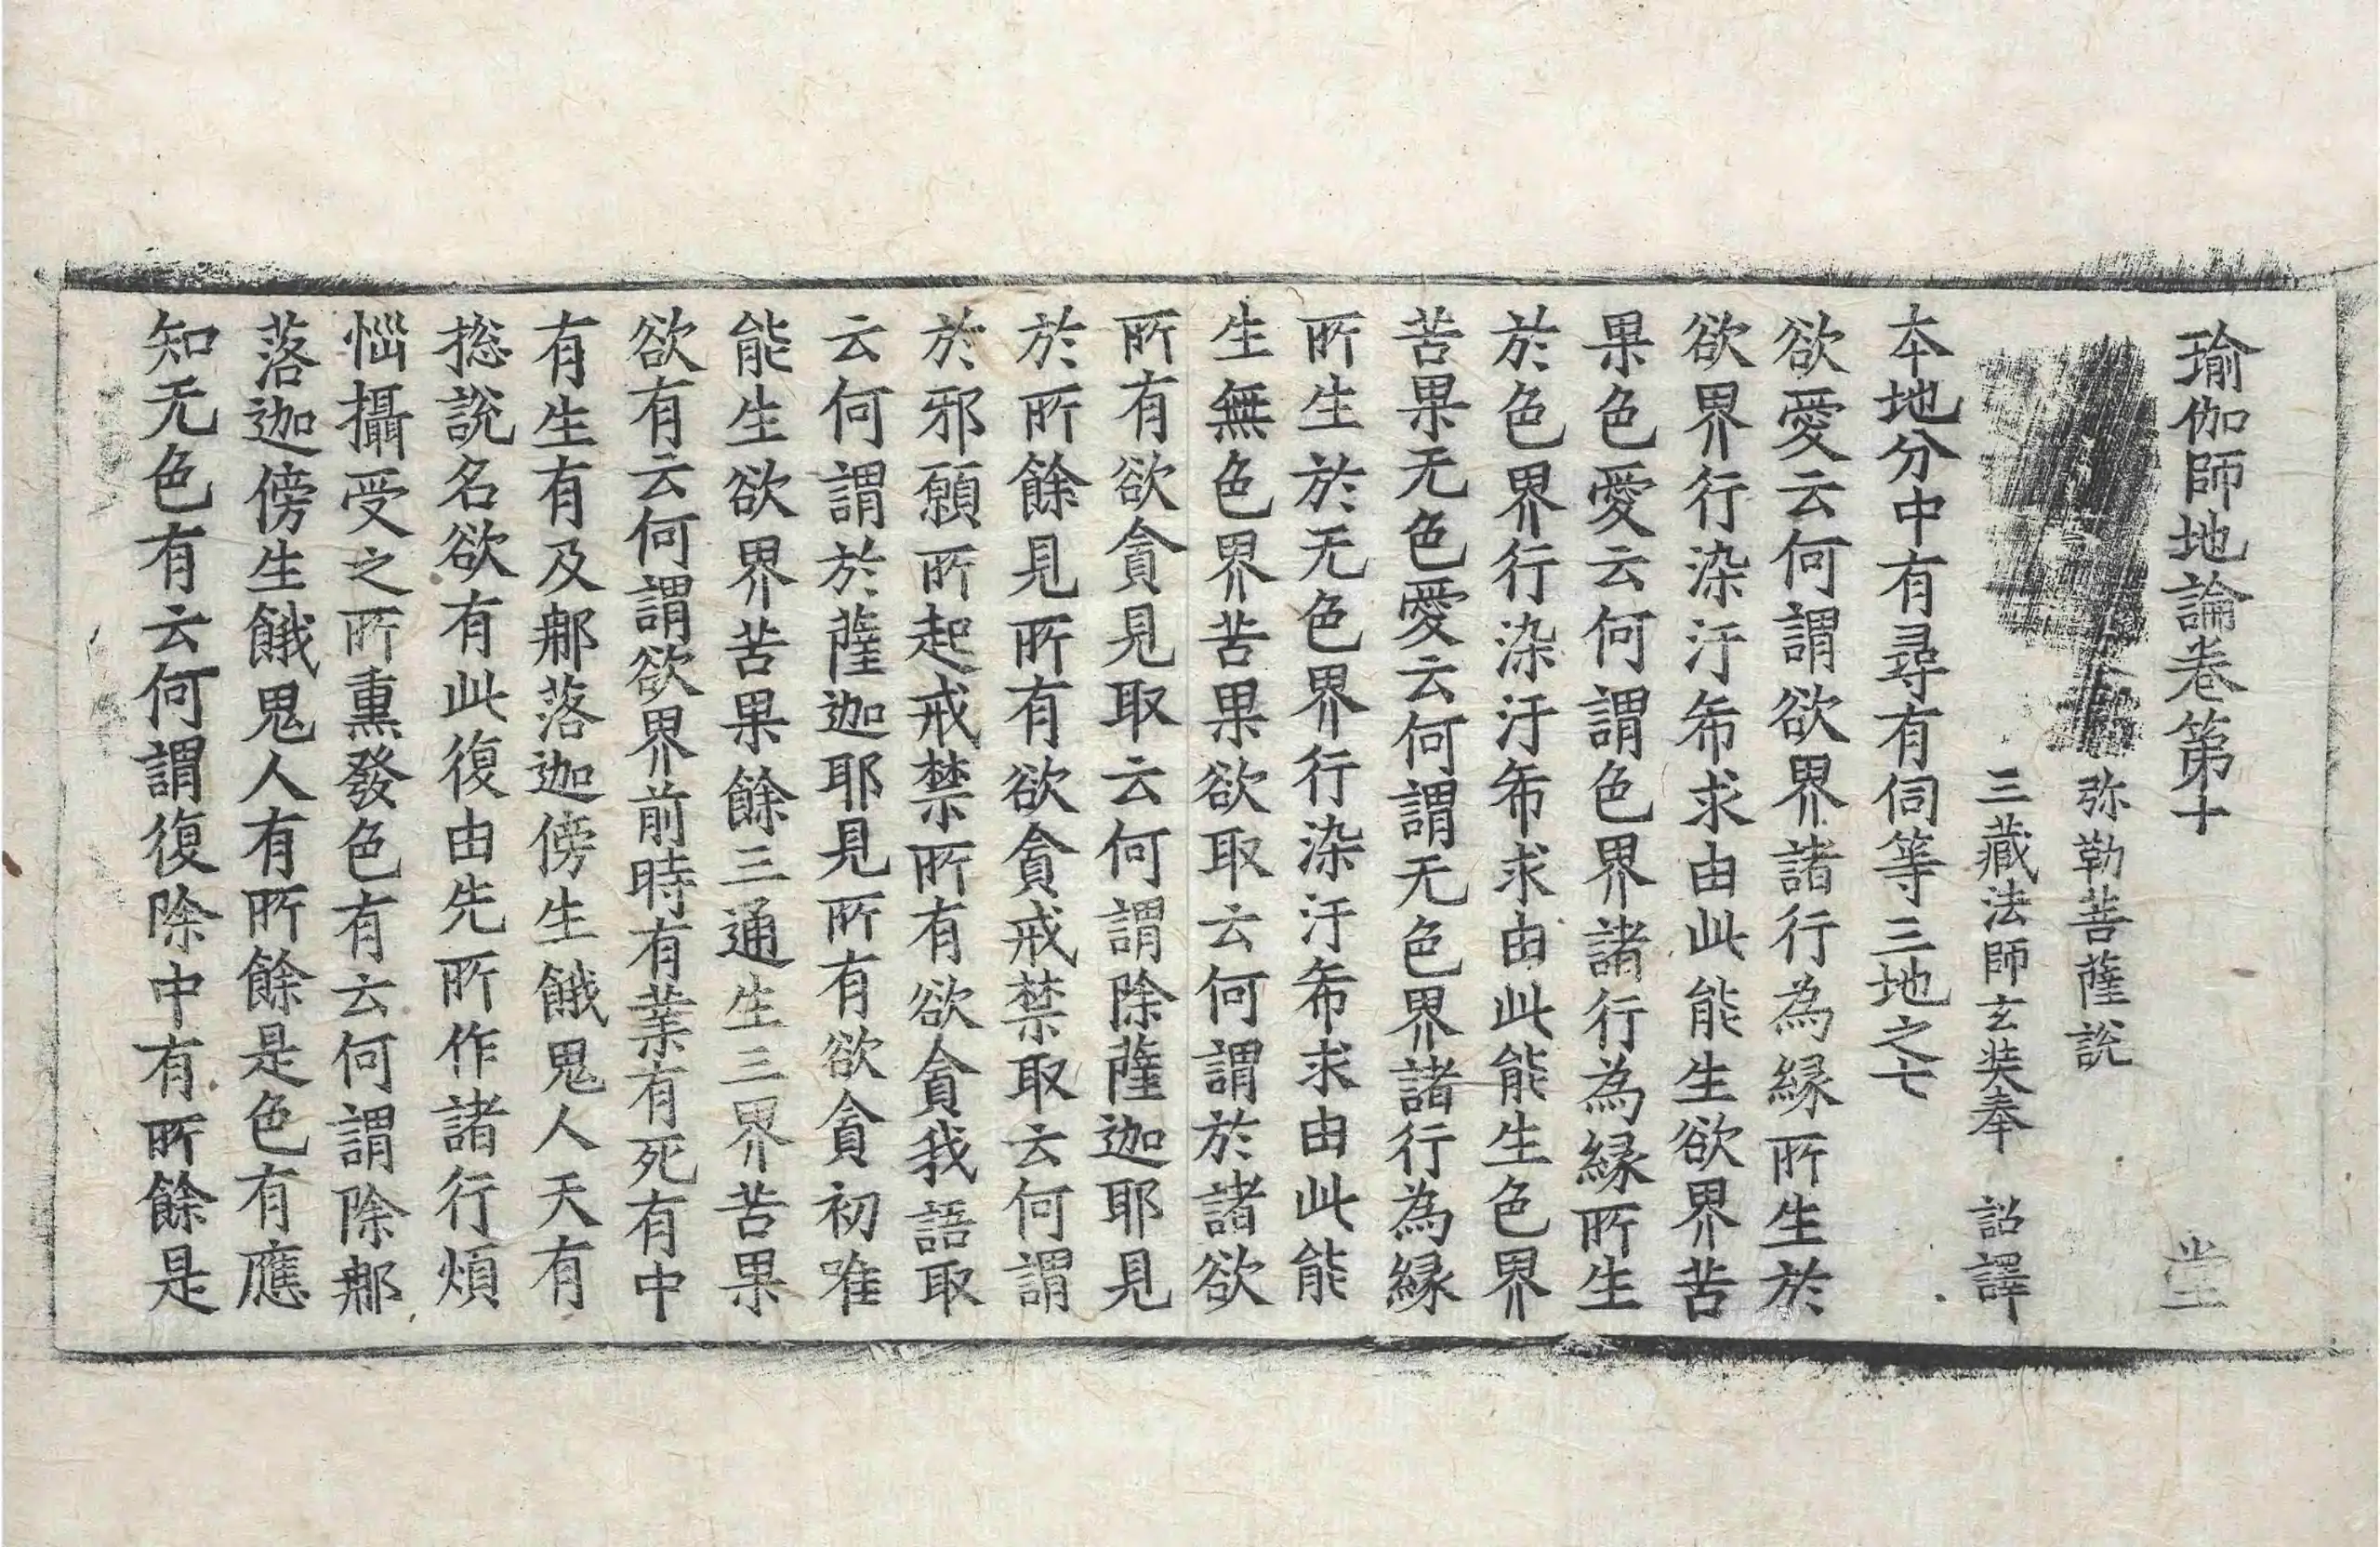 瑜伽師地論卷第十 堂
弥勒菩薩說
三藏法師玄奘奉 詔譯
本地分中有尋有伺等三地之七
欲愛云何謂欲界諸行為緣所生於
欲界行染汙希求由此能生欲界苦
果色愛云何謂色界諸行為緣所生
於色界行染汙希求由此能生色界
苦果无色愛云何謂无色界諸行為緣
所生於无色界行染汙希求由此能
生無色界苦果欲取云何謂於諸欲
所有欲貪見取云何謂除薩迦耶見
於所餘見所有欲貪戒禁取云何謂
於邪願所起戒禁所有欲貪我語取
云何謂於薩迦耶見所有欲貪初唯
能生欲界苦果餘三通生三界苦果
欲有云何謂欲界前時有業有死有中
有生有及那落迦傍生餓鬼人天有
揔說名欲有此復由先所作諸行煩
惱攝受之所熏發色有云何謂除那
落迦傍生餓鬼人有所餘是色有應
知无色有云何謂復除中有所餘是